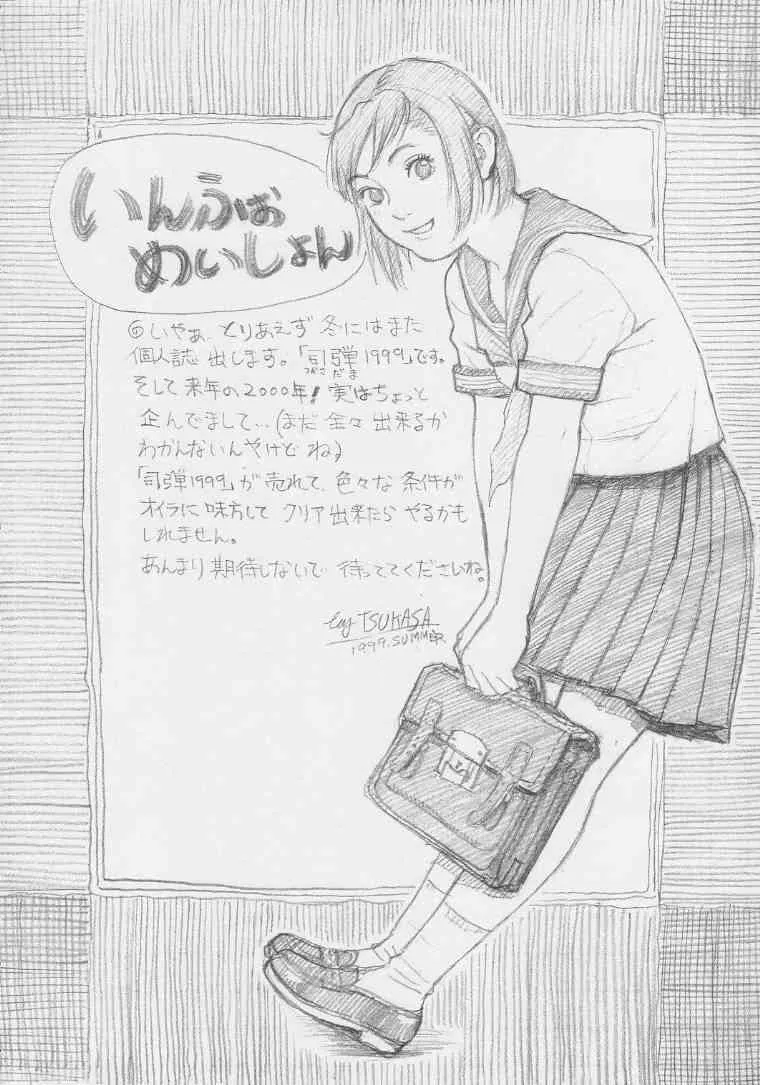 いんふぉ
めいしょん
◎いやぁ、とりあえず 冬にはまた
個人誌 出します。「司弾1999」です。
つかさ だま
そして来年の2000年！実はちょっと
企んでまして…(まだ 全々 出来るか
わかんないんやけど ね)
「司弾1999」が 売れて、色々な 条件が
オイラに 味方して クリア 出来たら やるかも
しれません。
あんまり 期待しないで 待っててくださいね。
by TSUKASA
1999. SUMMER